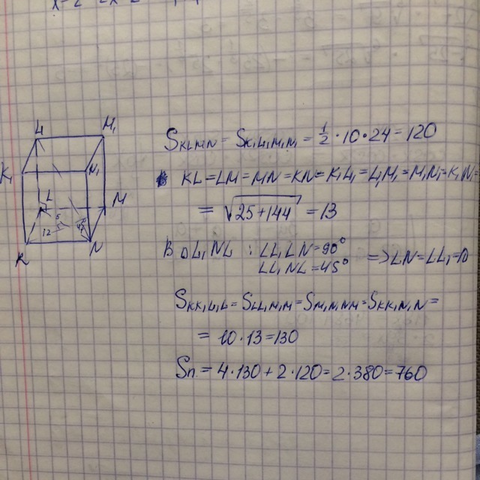 L₁ M₁
K₁ N₁
L M
5
12 45°
K N
S_KLMN = S_K₁L₁M₁N₁ = 1/2 · 10 · 24 = 120
KL = LM = MN = KN = K₁L₁ = L₁M₁ = M₁N₁ = K₁N₁ =
= √(25+144) = 13
В △L₁NL : ∠L₁LN = 90°
∠L₁NL = 45° => LN = LL₁ = 10
S_KK₁L₁L = S_LL₁M₁M = S_M₁N₁NM = S_KK₁N₁N =
= 10 · 13 = 130
Sп = 4 · 130 + 2 · 120 = 2 · 380 = 760